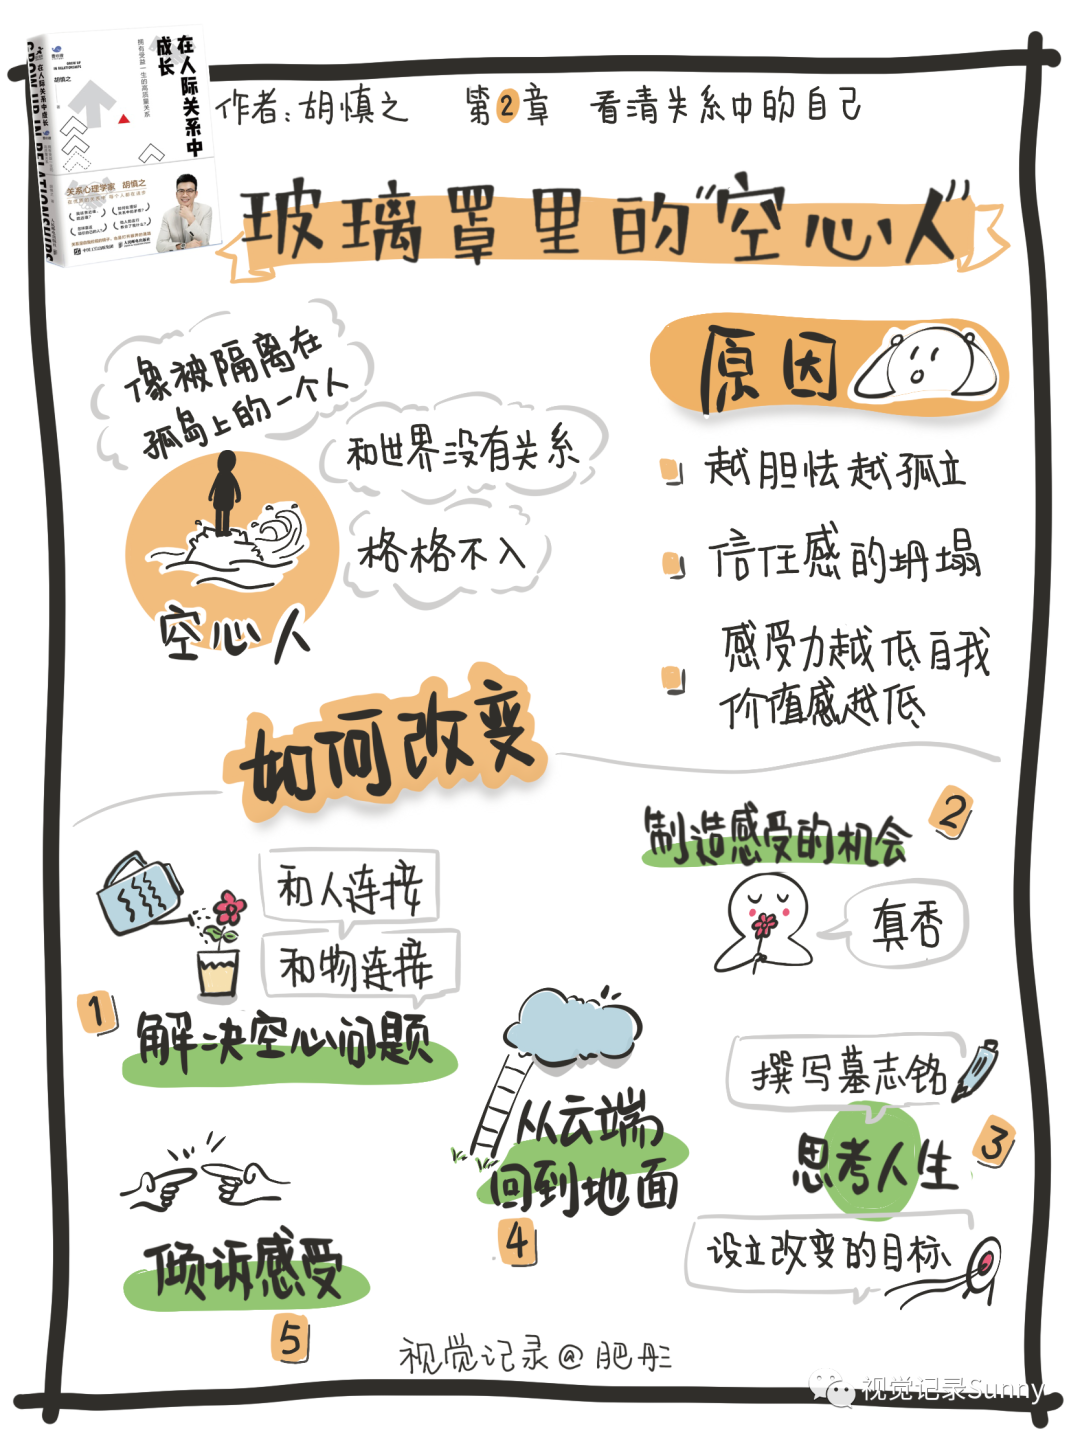 在人际关系中
成长
拥有受益一生的高质量关系
胡慎之
GROW UP IN RELATIONSHIPS
关系心理学家 胡慎之
人民邮电出版社
作者:胡慎之 第2章 看清关系中的自己
玻璃罩里的“空心人”
像被隔离在
孤岛上的一个人
和世界没有关系
格格不入
空心人
原因
越胆怯越孤立
信任感的坍塌
感受力越低自我
价值感越低
如何改变
和人连接
和物连接
1
解决空心问题
2
制造感受的机会
真香
撰写墓志铭
3
思考人生
设立改变的目标
从云端
回到地面
4
倾诉感受
5
视觉记录@肥彤
视觉记录Sunny